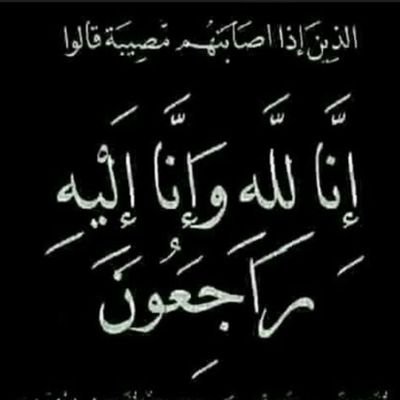 الذِينَ إذا اصَابَتهُم مّصِيبَة قالوا
إِنَّا لِلَّهِ وَإِنَّا إِلَيْهِ
رَاجَعُونَ